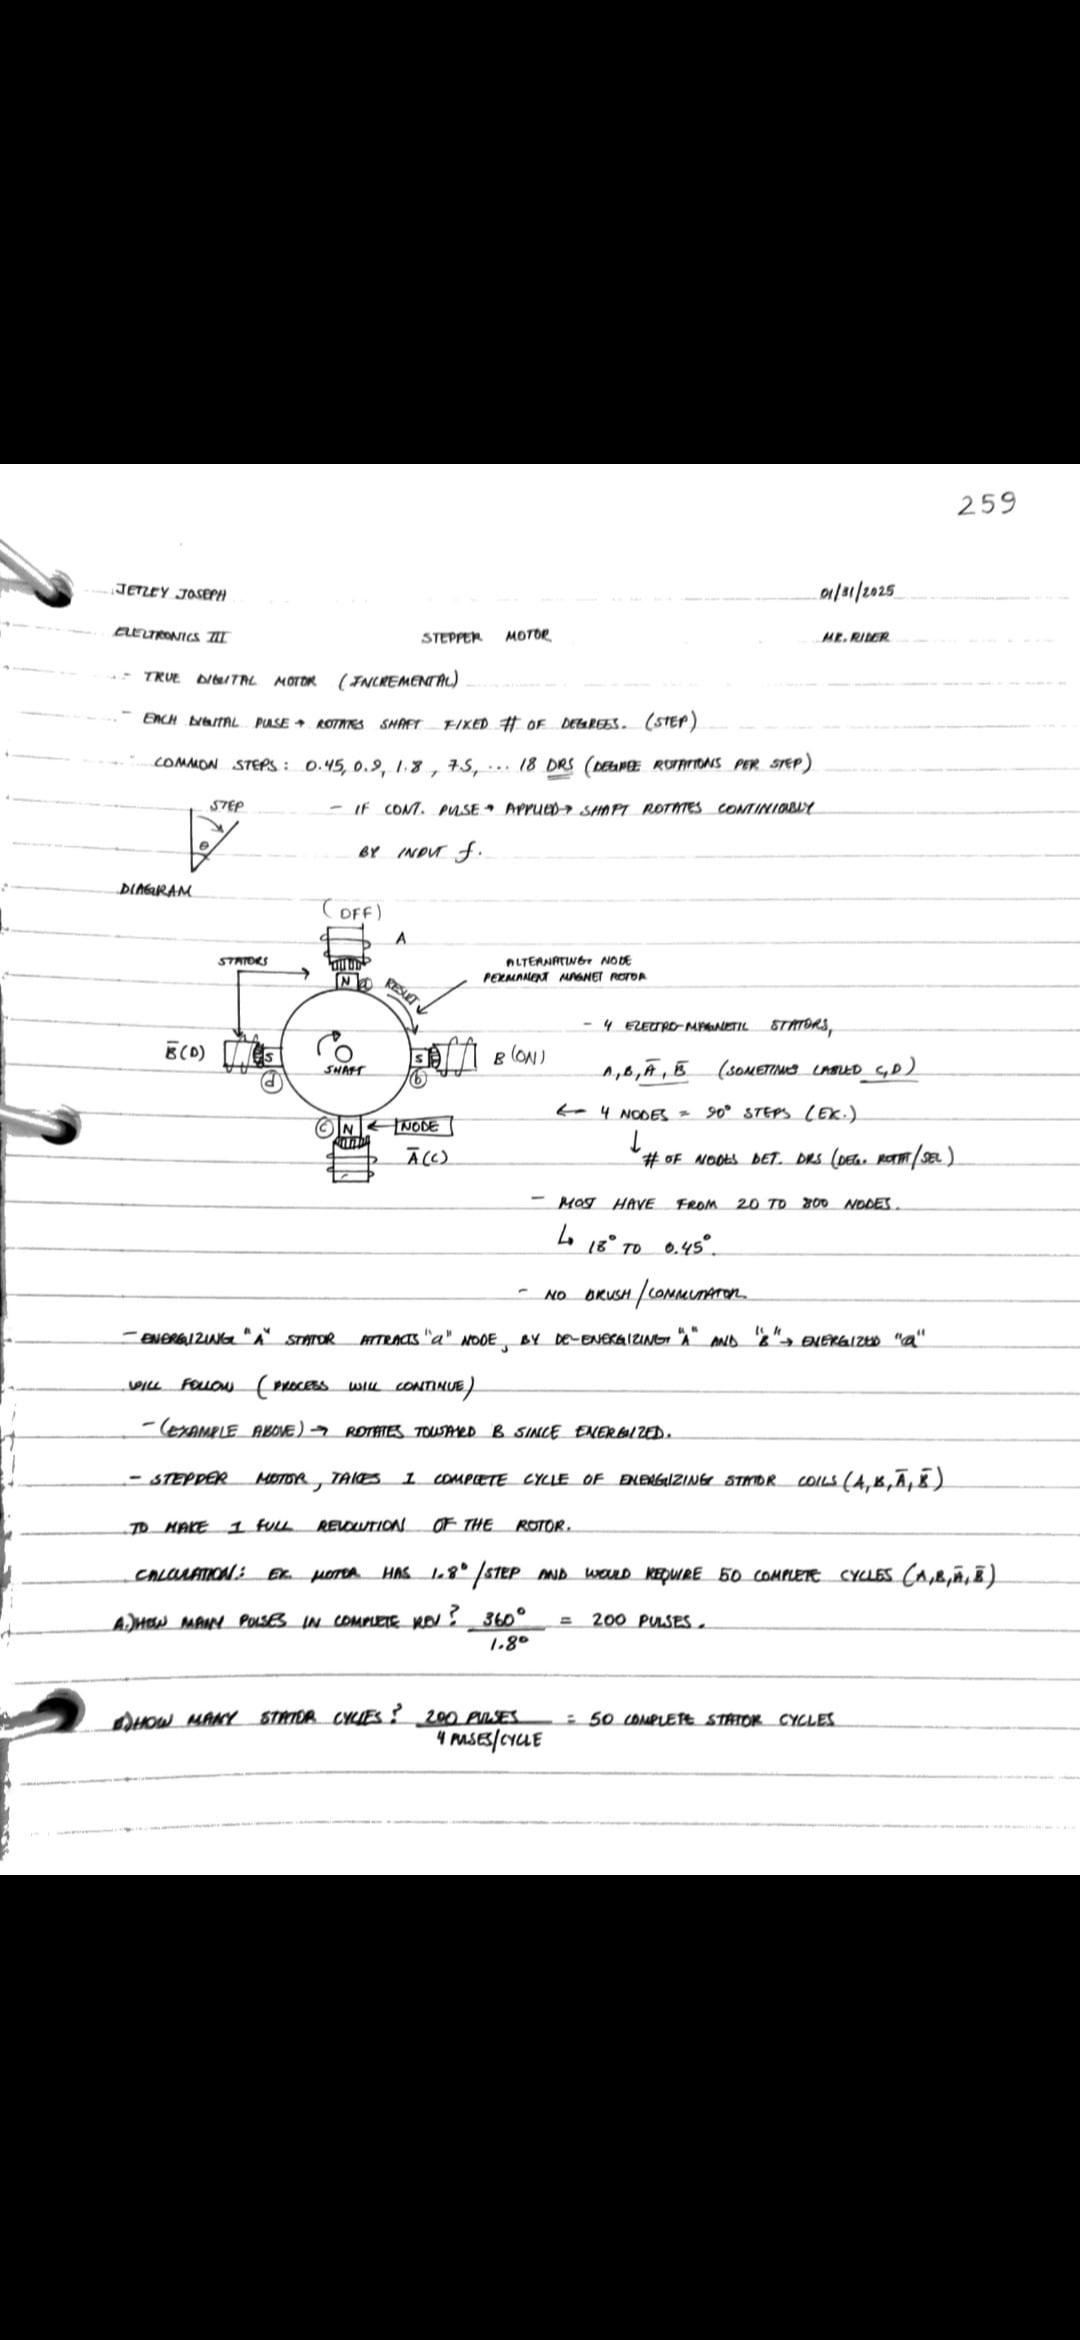 259
JETLEY JOSEPH 01/31/2025
ELECTRONICS III STEPPER MOTOR MR. RIDER
- TRUE DIGITAL MOTOR (INCREMENTAL)
- EACH DIGITAL PULSE → ROTATES SHAFT FIXED # OF DEGREES. (STEP)
COMMON STEPS: 0.45, 0.9, 1.8, 7.5, ... 18 DRS (DEGREE ROTATIONS PER STEP)
STEP - IF CONT. PULSE → APPLIED → SHAFT ROTATES CONTINIOUSLY
θ BY INPUT f.
DIAGRAM
(OFF)
A
STATORS ALTERNATING NODE
N a RESULT PERMANENT MAGNET ROTOR
- 4 ELECTRO-MAGNETIC STATORS,
B̅(D) S S B (ON)
SHAFT A, B, A̅, B̅ (SOMETIMES LABLED C,D)
d b
← 4 NODES = 90° STEPS (EX.)
C N ← NODE
A̅(C) ↓ # OF NODES DET. DRS (DEG. ROTAT/SEC)
- MOST HAVE FROM 20 TO 800 NODES.
↳ 18° TO 0.45°.
- NO BRUSH/COMMUTATOR
- ENERGIZING "A" STATOR ATTRACTS "a" NODE, BY DE-ENERGIZING "A" AND "B" → ENERGIZED "a"
WILL FOLLOW (PROCESS WILL CONTINUE)
- (EXAMPLE ABOVE) → ROTATES TOWARD B SINCE ENERGIZED.
- STEPPER MOTOR, TAKES 1 COMPLETE CYCLE OF ENERGIZING STATOR COILS (A, B, A̅, B̅)
TO MAKE 1 FULL REVOLUTION OF THE ROTOR.
CALCULATION: EX. MOTOR HAS 1.8°/STEP AND WOULD REQUIRE 50 COMPLETE CYCLES (A,B,A̅,B̅)
A.) HOW MANY PULSES IN COMPLETE REV? 360° = 200 PULSES.
1.8°
B) HOW MANY STATOR CYCLES? 200 PULSES = 50 COMPLETE STATOR CYCLES
4 PULSES/CYCLE